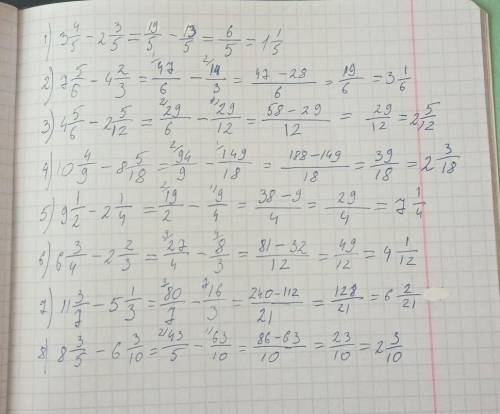 1) 3 4/5 - 2 3/5 = 19/5 - 13/5 = 6/5 = 1 1/5
2) 7 5/6 - 4 2/3 = 47/6 - 14/3 = 47-28/6 = 19/6 = 3 1/6
3) 4 5/6 - 2 5/12 = 29/6 - 29/12 = 58-29/12 = 29/12 = 2 5/12
4) 10 4/9 - 8 5/18 = 94/9 - 149/18 = 188-149/18 = 39/18 = 2 3/18
5) 9 1/2 - 2 1/4 = 19/2 - 9/4 = 38-9/4 = 29/4 = 7 1/4
6) 6 3/4 - 2 2/3 = 27/4 - 8/3 = 81-32/12 = 49/12 = 4 1/12
7) 11 3/7 - 5 1/3 = 80/7 - 16/3 = 240-112/21 = 128/21 = 6 2/21
8) 8 3/5 - 6 3/10 = 43/5 - 63/10 = 86-63/10 = 23/10 = 2 3/10